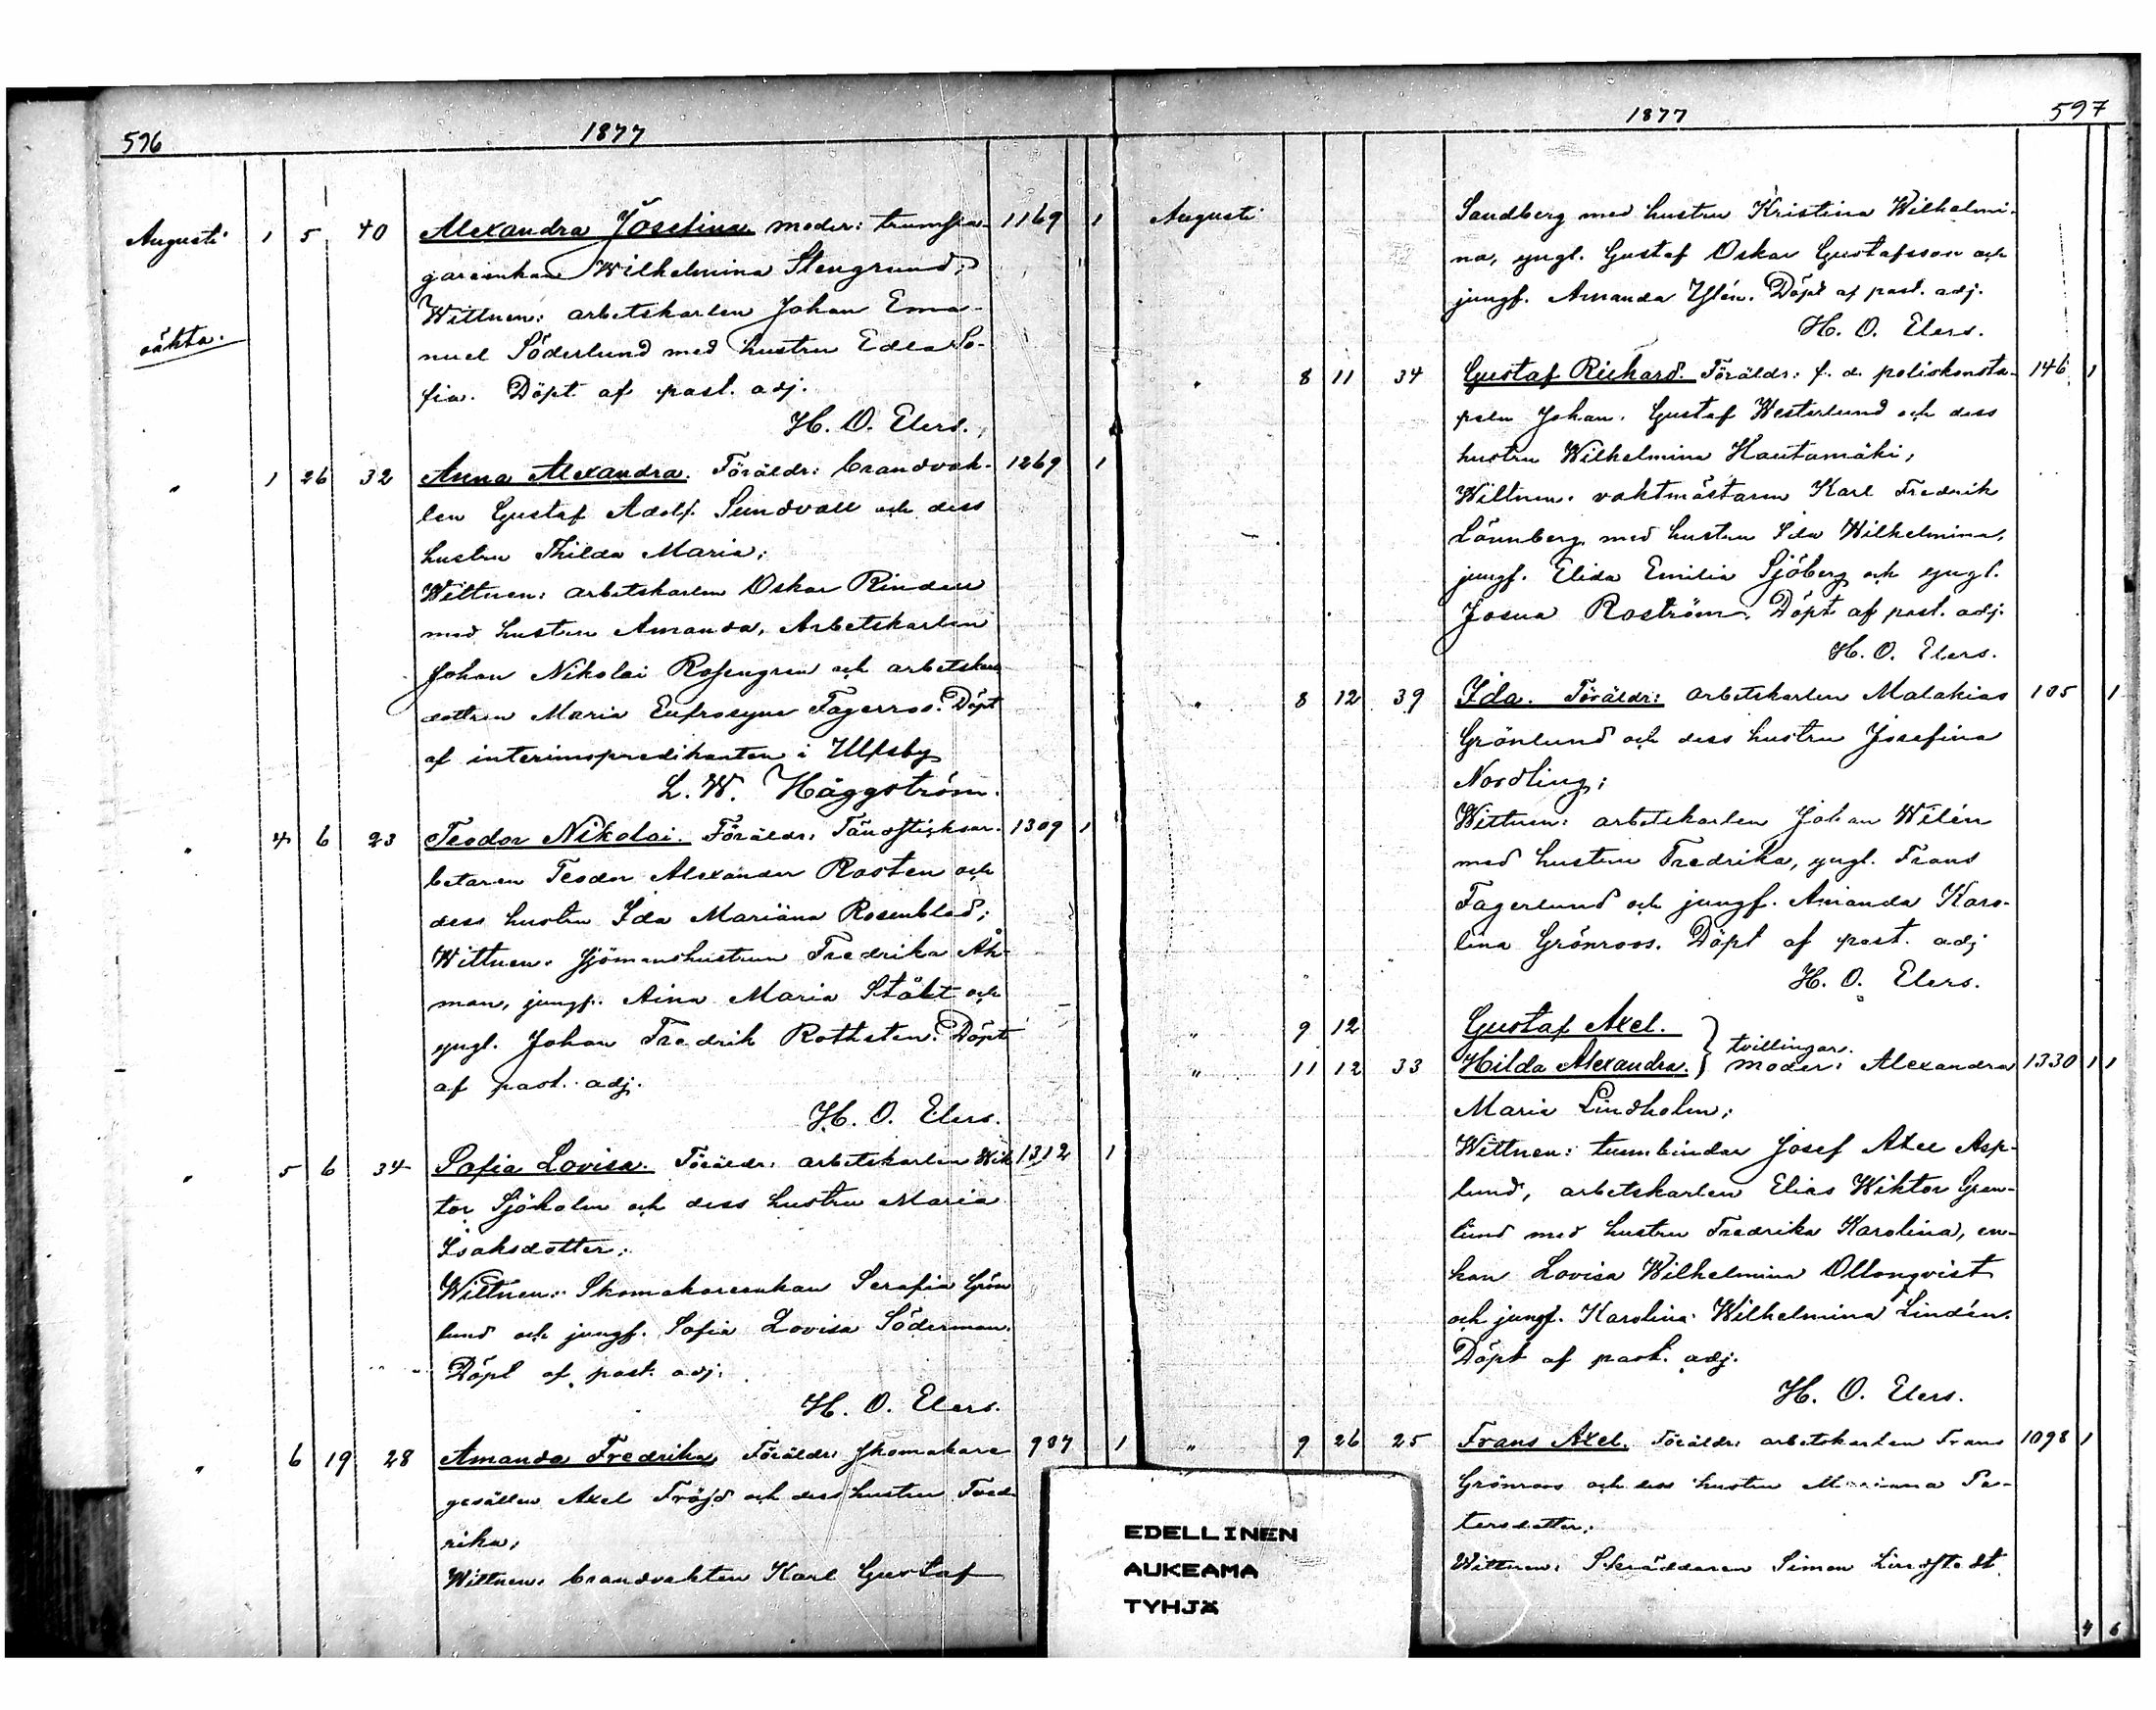 596
1877
Augusti 1 5 40 Alexandra Josefina. moder: trumsla- 1169 1
gareenkan Wilhelmina Stengrund;
Wittnen: arbetskarlen Johan Ema-
oäkta. nuel Söderlund med hustru Edla So-
fia. Döpt af past. adj.
H. O. Elers.
" 1 26 32 Anna Alexandra. Föräldr: brandvak- 1269 1
ten Gustaf Adolf Sundvall och dess
hustru Thilda Maria;
Wittnen: arbetskarlen Oskar Rindell
med hustru Amanda, Arbetskarlen
Johan Nikolai Rosengren och arbetskarls
dottren Maria Eufrosyne Fagerroos. Döpt
af interimspredikanten i Ulfsby
L. W. Häggström.
" 4 6 23 Teodor Nikolai. Föräldr: Tändsticksar- 1309 1
betaren Teodor Alexander Rosten och
dess hustru Ida Mariana Rosenblad;
Wittnen: Sjömanshustrun Fredrika Åh-
man, jungf. Aina Maria Ståhl och
yngl. Johan Fredrik Rothsten. Döpt
af past. adj.
H. O. Elers.
" 5 6 34 Sofia Lovisa. Föräldr: arbetskarlen Wik- 1312 1
tor Sjöholm och dess hustru Maria
Isaksdotter;
Wittnen: Skomakareenkan Serafia Grön
lund och jungf. Sofia Lovisa Söderman.
Döpt af past. adj.
H. O. Elers.
" 6 19 28 Amanda Fredrika Föräldr: Skomakare 907 1
gesällen Axel Fröjd och dess hustru Fred-
rika;
Wittnen: brandvakten Karl Gustaf
1877
597
Augusti Sandberg med hustru Kristina Wilhelmi-
na, yngl. Gustaf Oskar Gustafsson och
jungf. Amanda Ylén. Döpt af past. adj.
H. O. Elers.
" 8 11 34 Gustaf Richard. Föräldr: f. d. poliskonsta- 146 1
peln Johan Gustaf Westerlund och dess
hustru Wilhelmina Hautamäki;
Wittnen: vaktmästaren Karl Fredrik
Lönnberg med hustru Ida Wilhelmina,
jungf. Elida Emilia Sjöberg och yngl.
Josua Roström. Döpt af past. adj.
H. O. Elers.
" 8 12 39 Ida. Föräldr: arbetskarlen Malakias 105 1
Grönlund och dess hustru Josefina
Nordling;
Wittnen: arbetskarlen Johan Wilén
med hustru Fredrika, yngl. Frans
Fagerlund och jungf. Amanda Karo-
lina Grönroos. Döpt af past. adj
H. O. Elers.
" 9 12 Gustaf Axel.
tvillingar.
" 11 12 33 Hilda Alexandra. } moder: Alexandra 1330 1 1
Maria Lindholm;
Wittnen: tunnbindar Josef Axel Asp-
lund, arbetskarlen Elias Wiktor Grön-
lund med hustru Fredrika Karolina, en-
kan Lovisa Wilhelmina Ollonqvist
och jungf. Karolina Wilhelmina Lindén.
Döpt af past. adj.
H. O. Elers.
" 9 26 25 Frans Axel. Föräldr: arbetskarlen Frans 1098 1
Grönroos och dess hustru Marianna Pe-
tersdotter;
Wittnen: Skräddaren Simon Lindstedt
4 6
EDELLINEN
AUKEAMA
TYHJÄ